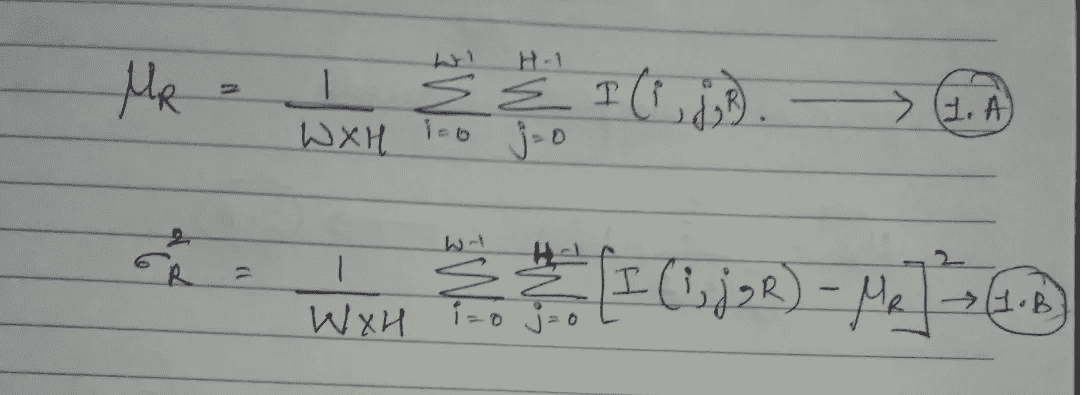 μ_R = 1/(W×H) Σ_{i=0}^{W-1} Σ_{j=0}^{H-1} I(i,j,R). → (1.A)
σ_R^2 = 1/(W×H) Σ_{i=0}^{W-1} Σ_{j=0}^{H-1} [I(i,j,R) - μ_R]^2 → (1.B)